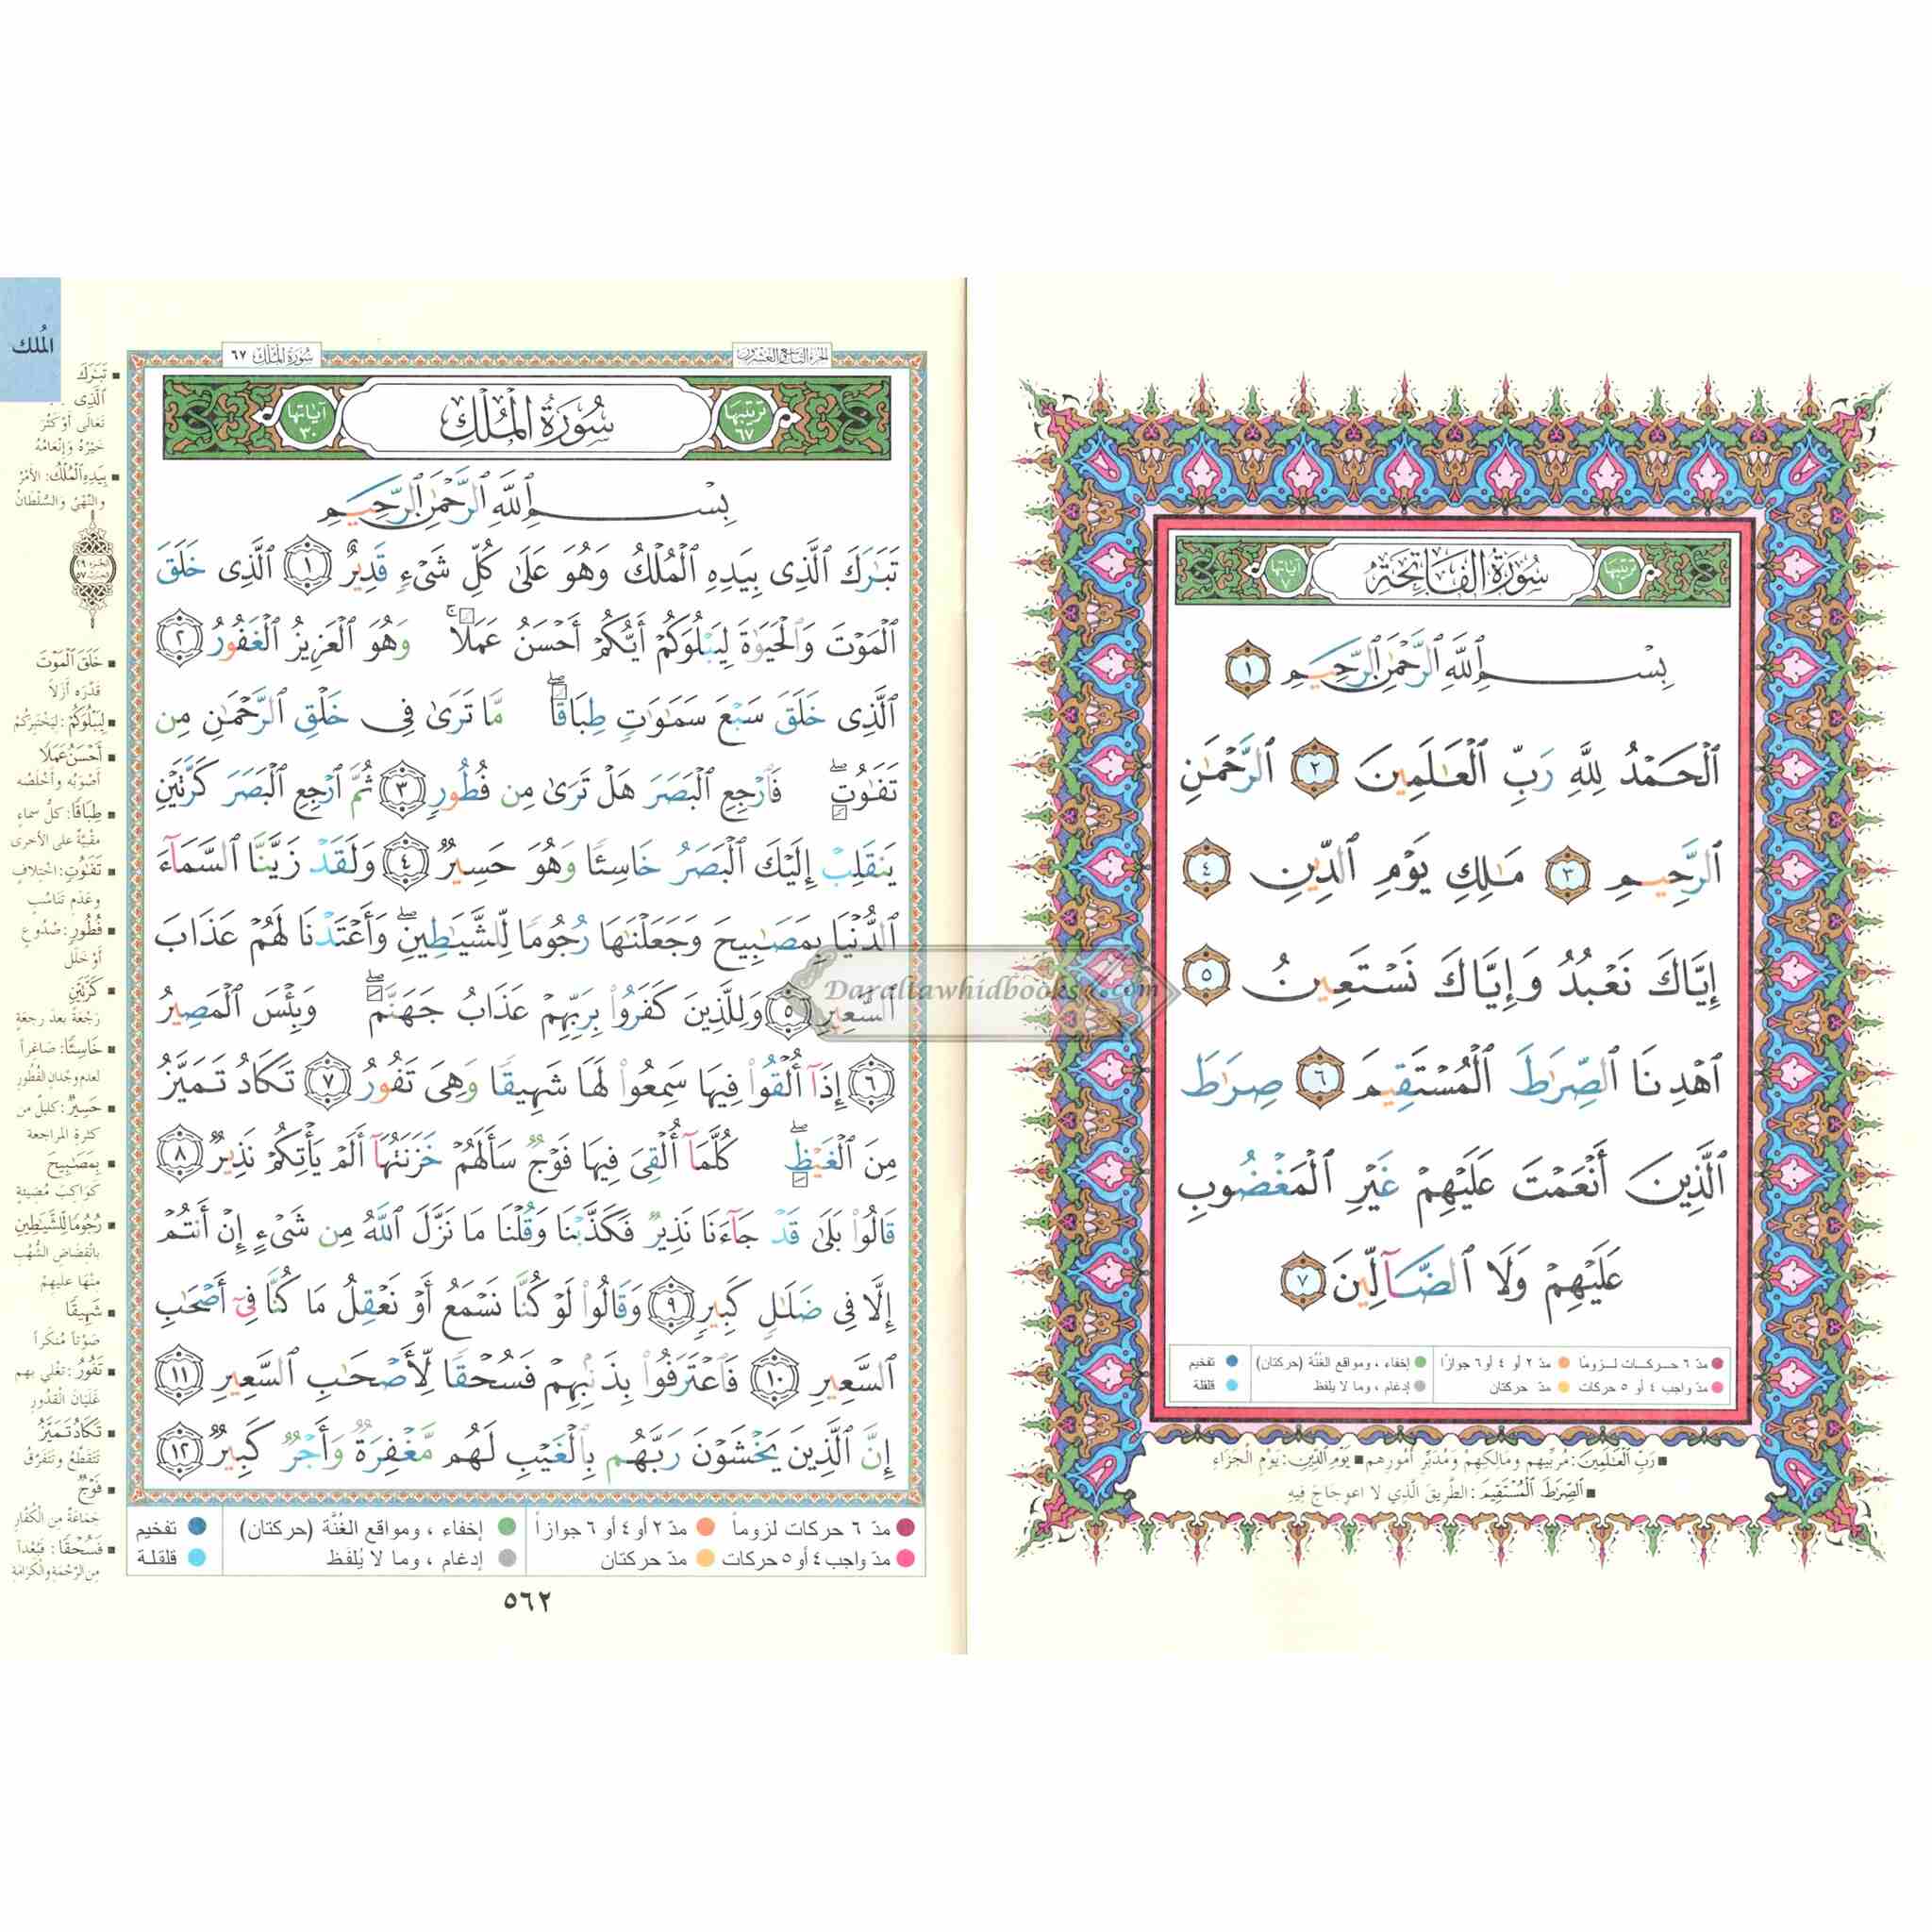 سُورَةُ الفَاتِحَة
ترتيبها ١
آياتها ٧
بِسْمِ ٱللَّهِ ٱلرَّحْمَٰنِ ٱلرَّحِيمِ ١
ٱلْحَمْدُ لِلَّهِ رَبِّ ٱلْعَٰلَمِينَ ٢ ٱلرَّحْمَٰنِ
ٱلرَّحِيمِ ٣ مَٰلِكِ يَوْمِ ٱلدِّينِ ٤
إِيَّاكَ نَعْبُدُ وَإِيَّاكَ نَسْتَعِينُ ٥
ٱهْدِنَا ٱلصِّرَٰطَ ٱلْمُسْتَقِيمَ ٦ صِرَٰطَ
ٱلَّذِينَ أَنْعَمْتَ عَلَيْهِمْ غَيْرِ ٱلْمَغْضُوبِ
عَلَيْهِمْ وَلَا ٱلضَّآلِّينَ ٧
مدّ ٦ حركات لزوماً مدّ ٢ أو ٤ أو ٦ جوازاً إخفاء ، ومواقع الغُنَّة (حركتان) تفخيم
مدّ واجب ٤ أو ٥ حركات مدّ حركتان إدغام ، وما لا يلفظ قلقلة
رَبِّ الْعَالَمِينَ: مُرَبِّيهِم ومَالِكِهِم وَمُدَبِّرِ أُمُورِهِم يَوْمِ الدِّينِ: يَوْمِ الْجَزَاءِ
الصِّرَاطَ الْمُسْتَقِيمَ: الطَّرِيقَ الَّذِي لا اعوِجَاجَ فِيهِ
الجزء التاسع والعشرون
سُورَةُ المُلْك ٦٧
سُورَةُ المُلْكِ
ترتيبها ٦٧
آياتها ٣٠
بِسْمِ ٱللَّهِ ٱلرَّحْمَٰنِ ٱلرَّحِيمِ
تَبَٰرَكَ ٱلَّذِى بِيَدِهِ ٱلْمُلْكُ وَهُوَ عَلَىٰ كُلِّ شَىْءٍ قَدِيرٌ ١ ٱلَّذِى خَلَقَ
ٱلْمَوْتَ وَٱلْحَيَوٰةَ لِيَبْلُوَكُمْ أَيُّكُمْ أَحْسَنُ عَمَلًا ۚ وَهُوَ ٱلْعَزِيزُ ٱلْغَفُورُ ٢
ٱلَّذِى خَلَقَ سَبْعَ سَمَٰوَٰتٍ طِبَاقًا ۖ مَّا تَرَىٰ فِى خَلْقِ ٱلرَّحْمَٰنِ مِن
تَفَٰوُتٍ ۖ فَٱرْجِعِ ٱلْبَصَرَ هَلْ تَرَىٰ مِن فُطُورٍ ٣ ثُمَّ ٱرْجِعِ ٱلْبَصَرَ كَرَّتَيْنِ
يَنقَلِبْ إِلَيْكَ ٱلْبَصَرُ خَاسِئًا وَهُوَ حَسِيرٌ ٤ وَلَقَدْ زَيَّنَّا ٱلسَّمَآءَ
ٱلدُّنْيَا بِمَصَٰبِيحَ وَجَعَلْنَٰهَا رُجُومًا لِّلشَّيَٰطِينِ ۖ وَأَعْتَدْنَا لَهُمْ عَذَابَ
ٱلسَّعِيرِ ٥ وَلِلَّذِينَ كَفَرُوا۟ بِرَبِّهِمْ عَذَابُ جَهَنَّمَ ۖ وَبِئْسَ ٱلْمَصِيرُ
٦ إِذَآ أُلْقُوا۟ فِيهَا سَمِعُوا۟ لَهَا شَهِيقًا وَهِىَ تَفُورُ ٧ تَكَادُ تَمَيَّزُ
مِنَ ٱلْغَيْظِ ۖ كُلَّمَآ أُلْقِىَ فِيهَا فَوْجٌ سَأَلَهُمْ خَزَنَتُهَآ أَلَمْ يَأْتِكُمْ نَذِيرٌ ٨
قَالُوا۟ بَلَىٰ قَدْ جَآءَنَا نَذِيرٌ فَكَذَّبْنَا وَقُلْنَا مَا نَزَّلَ ٱللَّهُ مِن شَىْءٍ إِنْ أَنتُمْ
إِلَّا فِى ضَلَٰلٍ كَبِيرٍ ٩ وَقَالُوا۟ لَوْ كُنَّا نَسْمَعُ أَوْ نَعْقِلُ مَا كُنَّا فِىٓ أَصْحَٰبِ
ٱلسَّعِيرِ ١٠ فَٱعْتَرَفُوا۟ بِذَنۢبِهِمْ فَسُحْقًا لِّأَصْحَٰبِ ٱلسَّعِيرِ ١١
إِنَّ ٱلَّذِينَ يَخْشَوْنَ رَبَّهُم بِٱلْغَيْبِ لَهُم مَّغْفِرَةٌ وَأَجْرٌ كَبِيرٌ ١٢
مدّ ٦ حركات لزوماً مدّ ٢ أو ٤ أو ٦ جوازاً إخفاء ، ومواقع الغُنَّة (حركتان) تفخيم
مدّ واجب ٤ أو ٥ حركات مدّ حركتان إدغام ، وما لا يُلفَظ قلقلة
٥٦٢
المُلك
تَبَٰرَكَ
ٱلَّذِى
تَعَالَى أَوْ كَثُرَ
خَيْرُهُ وَإِنْعَامُهُ
بِيَدِهِ الْمُلْكُ: الأَمْرُ
والنَّهْيُ والسُّلْطَانُ
خَلَقَ الْمَوْتَ
قَدَّرَه أَزَلاً
لِيَبْلُوَكُمْ: ليَخْتَبِرَكُمْ
أَحْسَنُ عَمَلًا
أصْوَبُه وأخْلَصُه
طِبَاقًا: كلّ سماءٍ
مقْبيَّةٌ على الأخرى
تَفَٰوُتٍ: اخْتِلافٍ
وعَدَمِ تَنَاسُبٍ
فُطُورٍ: صُدُوعٍ
أوْ خَلَلٍ
كَرَّتَيْنِ
رَجْعَةً بعدَ رجعةٍ
خَاسِئًا: صَاغِراً
لعدم وجْدان الفُطُورِ
حَسِيرٌ: كليلٌ من
كثرةِ المراجعة
بِمَصَٰبِيحَ
كَوَاكِبَ مُضِيئةٍ
رُجُومًا لِّلشَّيَٰطِينِ
بانْقِضَاضِ الشُّهُبِ
مِنْهَا عليهِمْ
شَهِيقًا
صَوْتاً مُنكَراً
تَفُورُ: تَغْلي بهِم
غَلَيَانَ الْقِدُورِ
تَكَادُ تَمَيَّزُ
تَتَقَطَّعُ وتَتَفَرَّقُ
فَوْجٌ
جَمَاعَةٌ مِنَ الْكُفَّارِ
فَسُحْقًا: فَبُعْداً
مِنَ الرَّحْمَةِ والْكَرَامَةِ
Darattawhidbooks.com